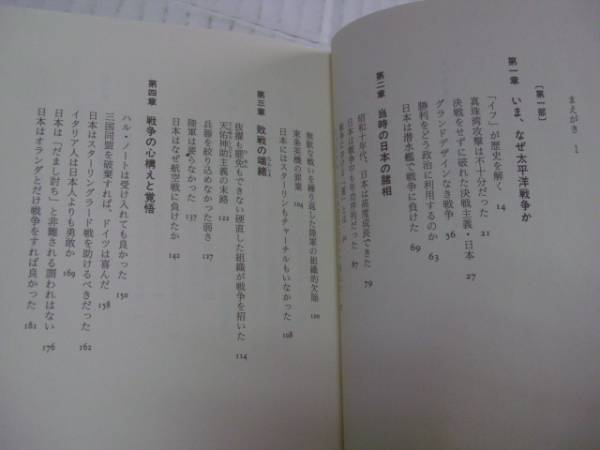 まえがき 1
[第一部]
第一章 いま、なぜ太平洋戦争か
「イフ」が歴史を解く 14
真珠湾攻撃は不十分だった 21
決戦をせずに破れた決戦主義・日本 27
グランドデザインなき戦争 56
勝利をどう政治に利用するのか 63
日本は潜水艦で戦争に負けた 69
第二章 当時の日本の諸相
昭和十年代、日本は高度成長できた 79
日本は戦争の
だった 87
無駄な戦いを繰り返した陸軍の組織的欠陥 100
東条英機の罪業 104
日本にはスターリンもチャーチルもいなかった 108
第三章 敗戦の端緒
抜擢も罷免もできない硬直した組織が戦争を招いた 114
天佑神助主義の末路 122
兵器を絞り込めなかった弱さ 127
陸軍は要らなかった 137
日本はなぜ航空戦に負けたか 142
第四章 戦争の心構えと覚悟
ハル・ノートは受け入れても良かった 150
三国同盟を破棄すれば、ドイツは喜んだ 158
日本はスターリングラード戦を助けるべきだった 162
イタリア人は日本人よりも勇敢か 169
日本は「だまし討ち」と非難される謂われはない 176
日本はオランダとだけ戦争をすれば良かった 181